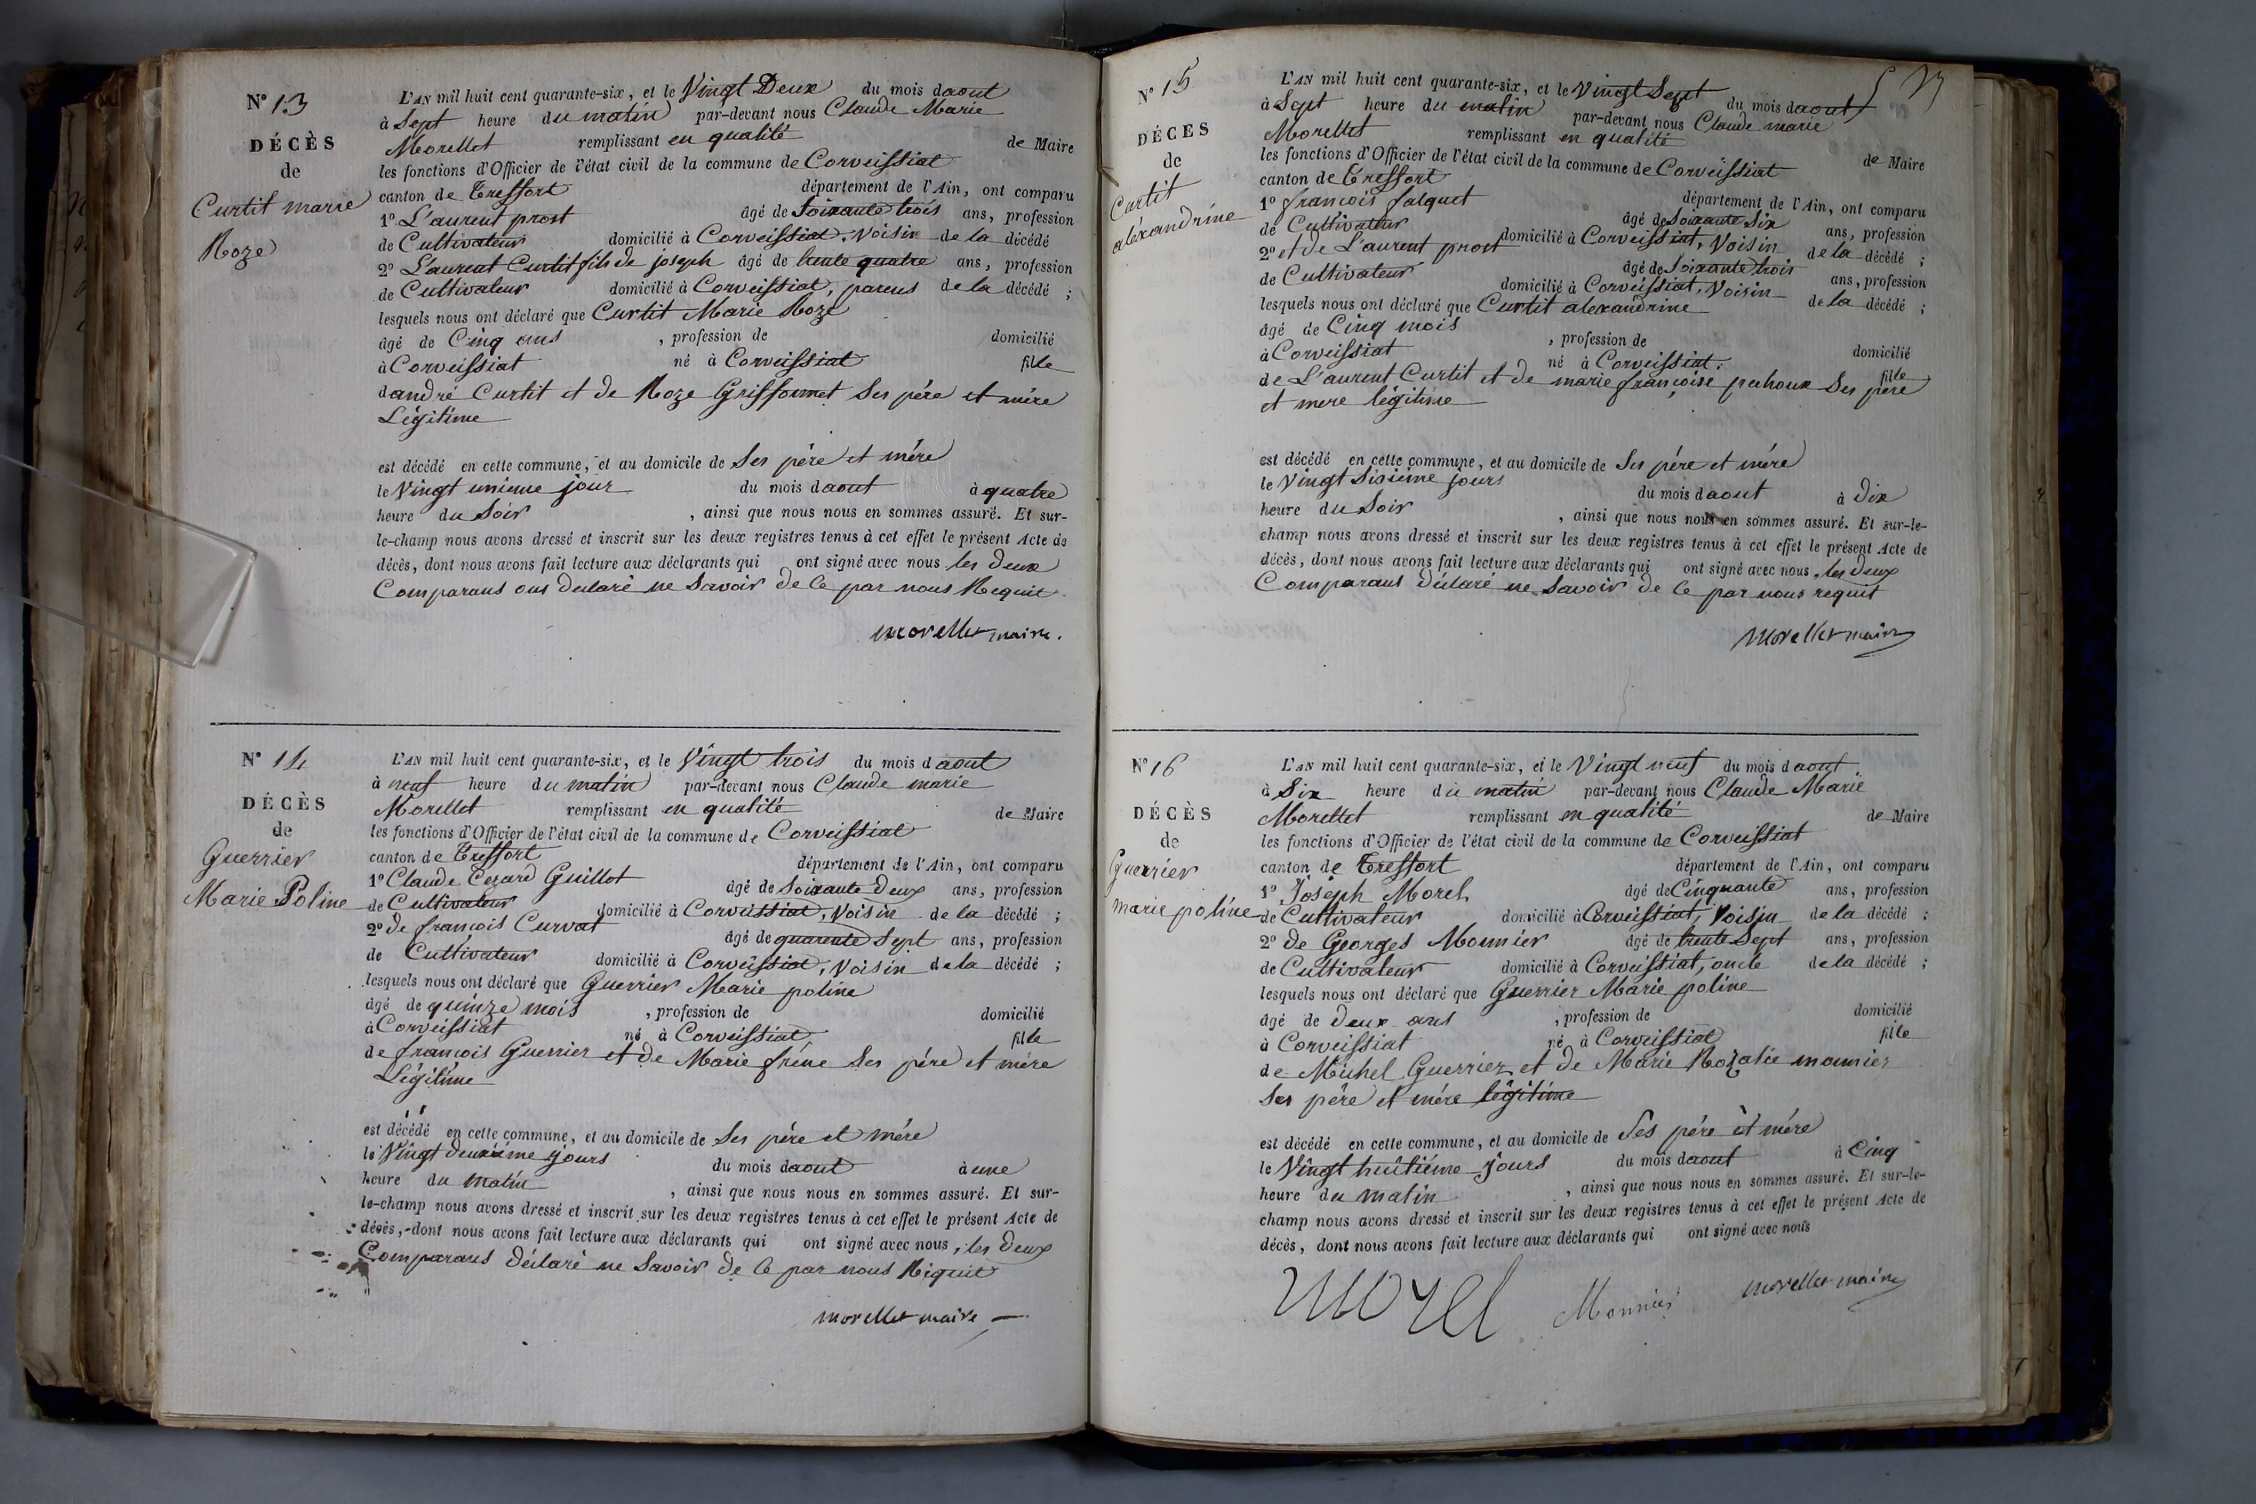 N° 13
DÉCÈS
de
Curtit marie
Roze
L'AN mil huit cent quarante-six, et le Vingt Deux du mois d aout
à Sept heure du matin par-devant nous Claude Marie
Morellet remplissant en qualité de Maire
les fonctions d'Officier de l'état civil de la commune de Corveissiat
canton de Treffort département de l'Ain, ont comparu
1° L'aurent prost âgé de Soixante trois ans, profession
de Cultivateur domicilié à Corveissiat, Voisin de la décédé
2° L'aurent Curtit fils de joseph âgé de trente quatre ans, profession
de Cultivateur domicilié à Corveissiat, parens de la décédé ;
lesquels nous ont déclaré que Curtit Marie Roze
âgé de Cinq ans , profession de domicilié
à Corveissiat né à Corveissiat fille
d andré Curtit et de Roze Griffonnet Ses père et mére
Légitime
est décédé en cette commune, et au domicile de Ses père et mére
le Vingt unieme jour du mois d aout à quatre
heure du Soir , ainsi que nous nous en sommes assuré. Et sur-
le-champ nous avons dressé et inscrit sur les deux registres tenus à cet effet le présent Acte de
décès, dont nous avons fait lecture aux déclarants qui ont signé avec nous les deux
Comparans ons déclaré ne Savoir de Ce par nous Requit
Morellet maire.
N° 14
DÉCÈS
de
Guerrier
Marie Poline
L'AN mil huit cent quarante-six, et le Vingt trois du mois d aout
à neuf heure du matin par-devant nous Claude marie
Morellet remplissant en qualité de Maire
les fonctions d'Officier de l'état civil de la commune de Corveissiat
canton de Treffort département de l'Ain, ont comparu
1° Claude Cezard Guillot âgé de Soixante Deux ans, profession
de Cultivateur domicilié à Corveissiat, Voisin de la décédé ;
2° de francois Curvat âgé de quarente Sept ans, profession
de Cultivateur domicilié à Corveissiat, Voisin de la décédé ;
lesquels nous ont déclaré que Guerrier Marie poline
âgé de quinze mois , profession de domicilié
à Corveissiat né à Corveissiat fille
de francois Guerrier et de Marie fréne Ses pére et mére
Légitime
est décédé en cette commune, et au domicile de Ses pére et mére
le Vingt deuxiéme jours du mois d aout à une
heure du matin , ainsi que nous nous en sommes assuré. Et sur-
le-champ nous avons dressé et inscrit sur les deux registres tenus à cet effet le présent Acte de
décès, dont nous avons fait lecture aux déclarants qui ont signé avec nous, les deux
Comparans déclaré ne Savoir de Ce par nous Requit
Morellet maire
N° 15
DÉCÈS
de
Curtit
aléxandrine
L'AN mil huit cent quarante-six, et le Vingt Sept du mois d aout
à Sept heure du matin par-devant nous Claude marie
Morellet remplissant en qualité de Maire
les fonctions d'Officier de l'état civil de la commune de Corveissiat
canton de Treffort département de l'Ain, ont comparu
1° francois falquet âgé de Soixante Six ans, profession
de Cultivateur domicilié à Corveissiat, Voisin de la décédé ;
2° et de L'aurent prost âgé de Soixante trois ans, profession
de Cultivateur domicilié à Corveissiat, Voisin de la décédé ;
lesquels nous ont déclaré que Curtit alexandrine
âgé de Cinq mois , profession de domicilié
à Corveissiat né à Corveissiat. fille
de L'aurent Curtit et de marie françoise pechoux Ses père
et mere légitime
est décédé en cette commune, et au domicile de Ses pére et mére
le Vingt Sixiéme jours du mois d aout à Dix
heure du Soir , ainsi que nous nous en sommes assuré. Et sur-le-
champ nous avons dressé et inscrit sur les deux registres tenus à cet effet le présent Acte de
décès, dont nous avons fait lecture aux déclarants qui ont signé avec nous, les deux
Comparans déclaré ne Savoir de Ce par nous requit
Morellet maire
N° 16
DÉCÈS
de
Guerrier
marie poline
L'AN mil huit cent quarante-six, et le Vingt neuf du mois d aout
à Six heure du matin par-devant nous Claude Marie
Morellet remplissant en qualité de Maire
les fonctions d'Officier de l'état civil de la commune de Corveissiat
canton de Treffort département de l'Ain, ont comparu
1° Joséph Morel âgé de Cinquante ans, profession
de Cultivateur domicilié à Corveissiat, Voisin de la décédé ;
2° de Georges Monnier âgé de trente Sept ans, profession
de Cultivateur domicilié à Corveissiat, oncle de la décédé ;
lesquels nous ont déclaré que Guerrier Marie poline
âgé de Deux ans , profession de domicilié
à Corveissiat né à Corveissiat fille
de Michel Guerrier et de Marie Rozalie monnier
Ses pére et mére légitime
est décédé en cette commune, et au domicile de Ses pére et mére
le Vingt huitiéme jours du mois d aout à Cinq
heure du matin , ainsi que nous nous en sommes assuré. Et sur-le-
champ nous avons dressé et inscrit sur les deux registres tenus à cet effet le présent Acte de
décès, dont nous avons fait lecture aux déclarants qui ont signé avec nous
Morel Monnier Morellet maire